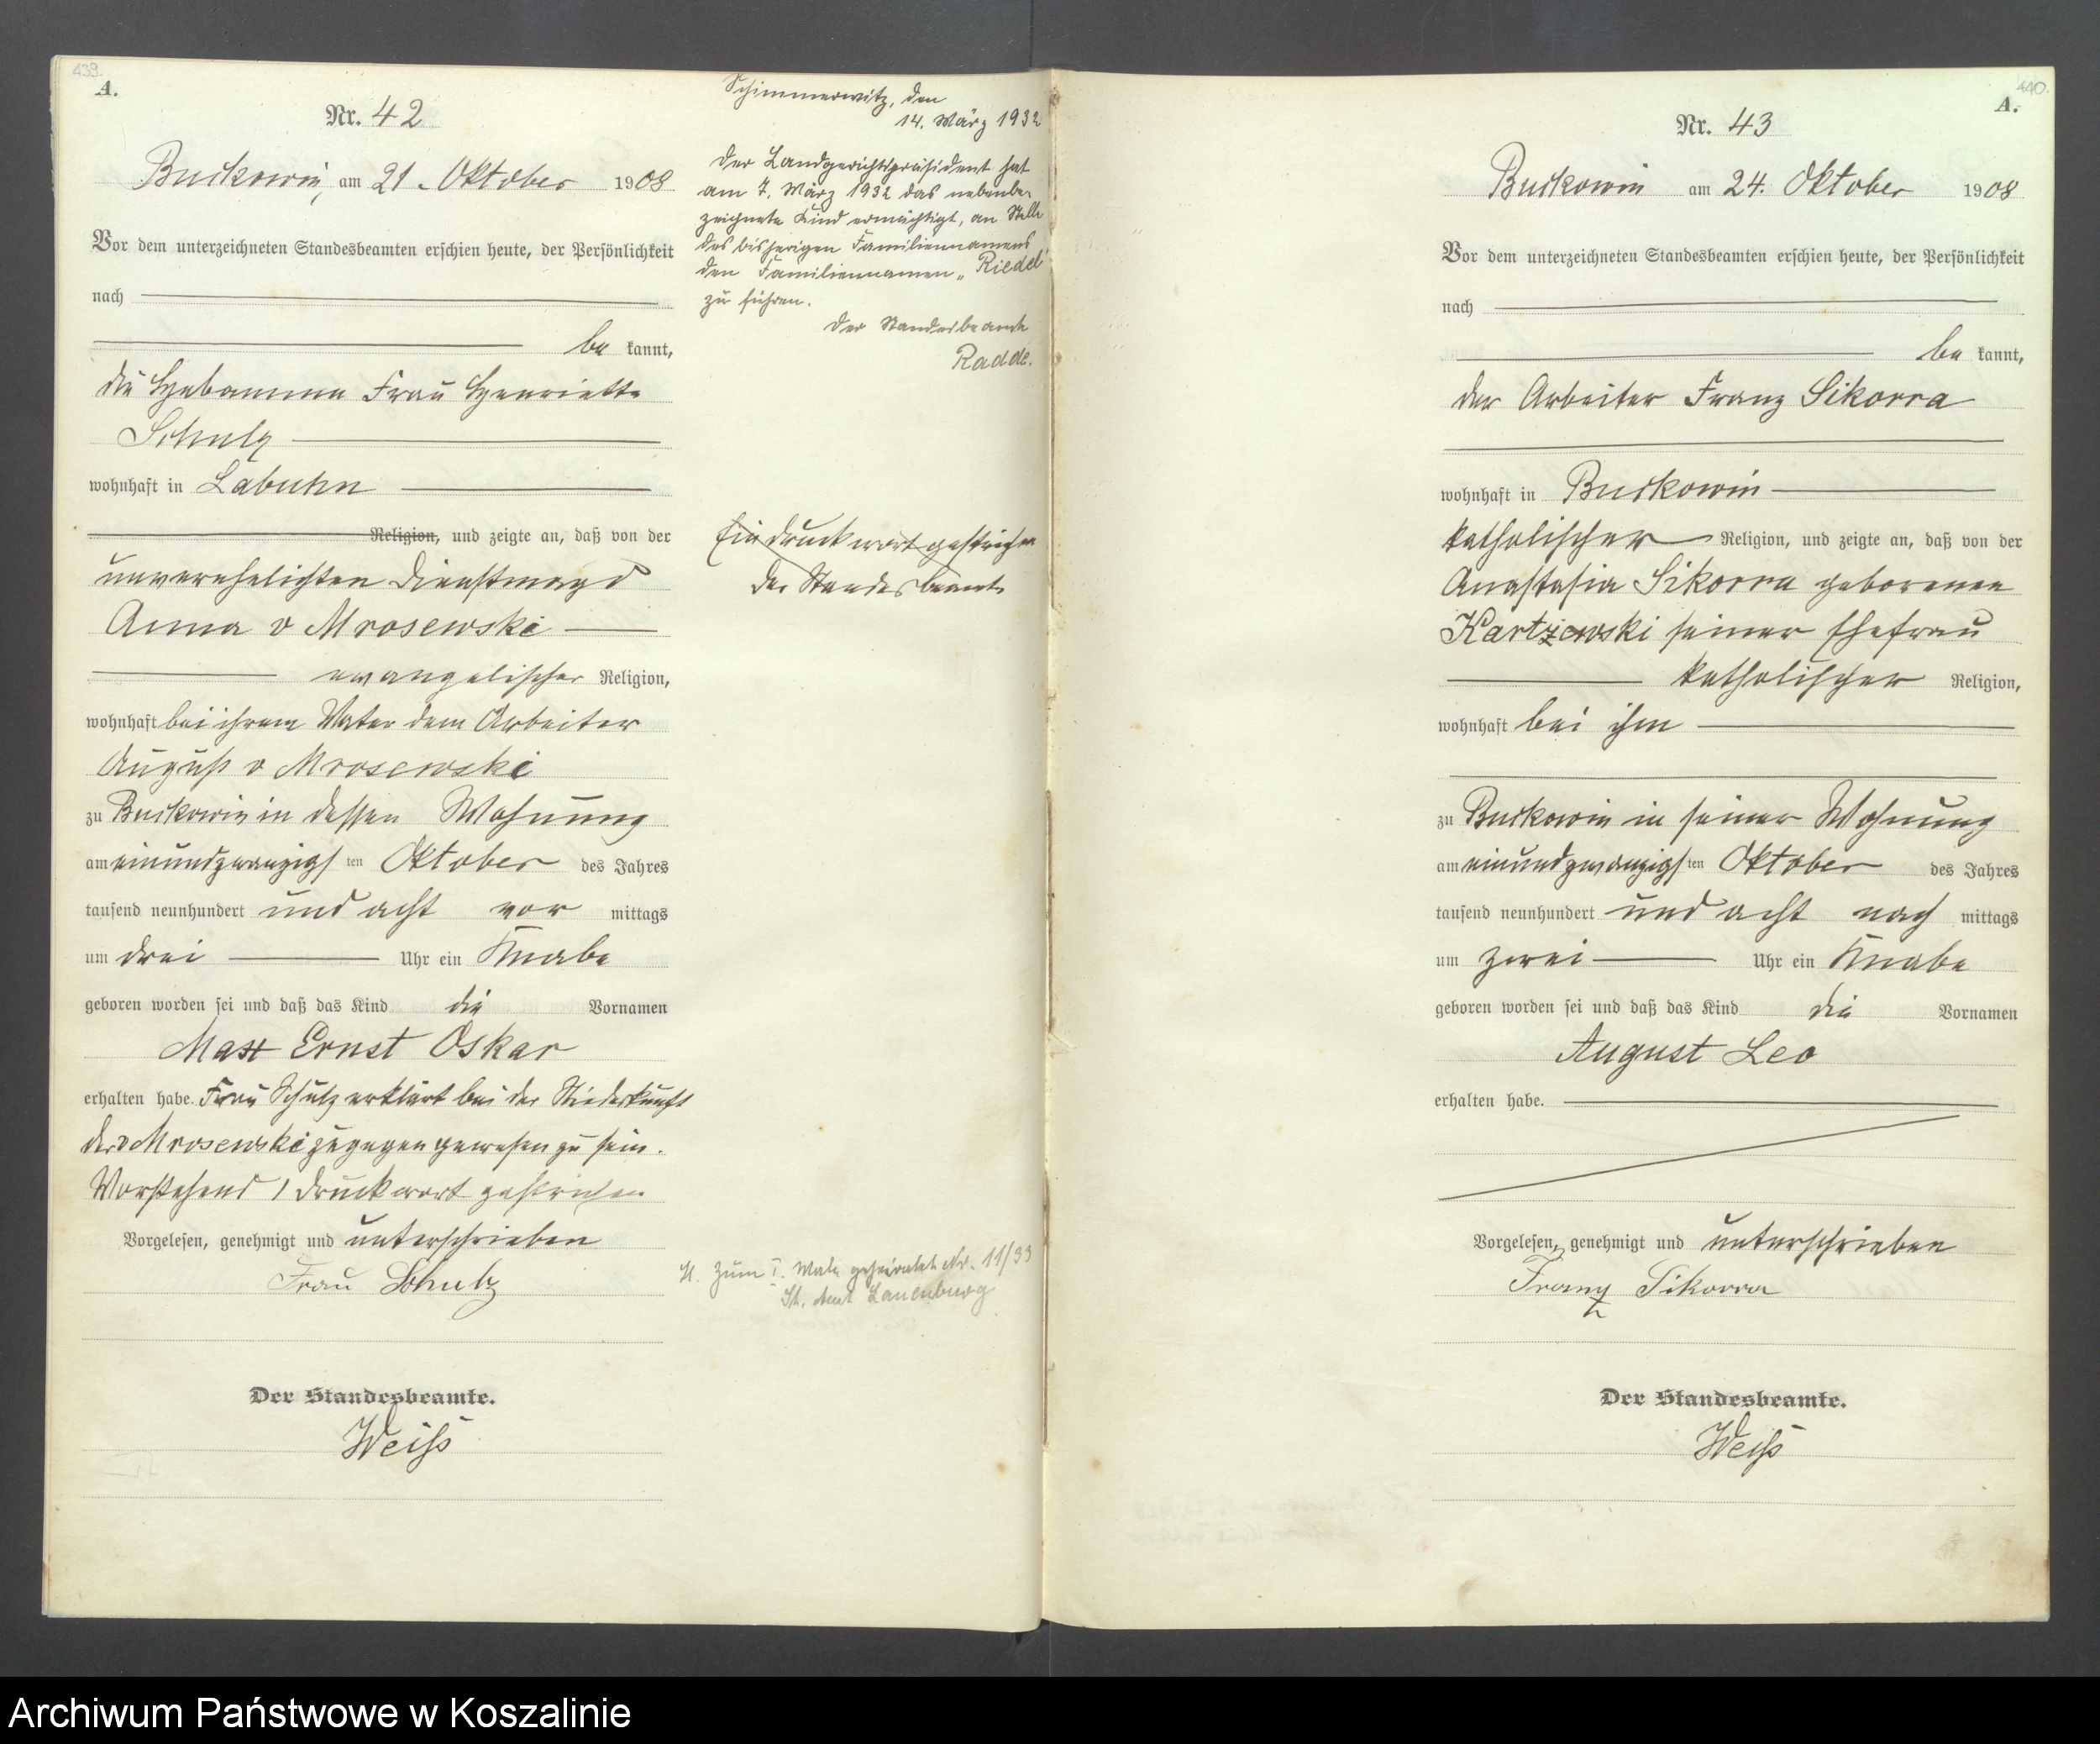 439.
A.
Nr. 42
Buckowin, am 21. Oktober 1908
Vor dem unterzeichneten Standesbeamten erschien heute, der Persönlichkeit
nach
be kannt,
die Hebamme Frau Henriette
Schulz
wohnhaft in Labuhn
Religion, und zeigte an, daß von der
unverehelichten Dienstmagd
Anna v Mrosewski
evangelischer Religion,
wohnhaft bei ihrem Vater dem Arbeiter
August v Mrosewski
zu Buckowin in dessen Wohnung
am einundzwanzigsten Oktober des Jahres
tausend neunhundert und acht vor mittags
um drei Uhr ein Knabe
geboren worden sei und daß das Kind die Vornamen
Max Ernst Oskar
erhalten habe. Frau Schulz erklärt bei der Niederkunft
der v Mrosewski zugegen gewesen zu sein.
Vorstehend 1 Druckwort gestrichen
Vorgelesen, genehmigt und unterschrieben
Frau Schulz
Der Standesbeamte.
Weiß
Schimmerwitz, den
14. März 1932
Der Landgerichtspräsident hat
am 7. März 1932 das nebenbe-
zeichnete Kind ermächtigt, an Stelle
des bisherigen Familiennamens
den Familiennamen „Riedel"
zu führen.
Der Standesbeamte
Radde.
Ein Druckwort gestrichen
Der Standesbeamte
H. Zum I. Male geheiratet Nr. 11/33
St. Amt Lauenburg
440.
A.
Nr. 43
Buckowin am 24. Oktober 1908
Vor dem unterzeichneten Standesbeamten erschien heute, der Persönlichkeit
nach
be kannt,
der Arbeiter Franz Sikorra
wohnhaft in Buckowin
katholischer Religion, und zeigte an, daß von der
Anastasia Sikorra geborenen
Kartzewski seiner Ehefrau
katholischer Religion,
wohnhaft bei ihm
zu Buckowin in seiner Wohnung
am einundzwanzigsten Oktober des Jahres
tausend neunhundert und acht nach mittags
um zwei Uhr ein Knabe
geboren worden sei und daß das Kind die Vornamen
August Leo
erhalten habe.
Vorgelesen, genehmigt und unterschrieben
Franz Sikorra
Der Standesbeamte.
Weiß
Archiwum Państwowe w Koszalinie